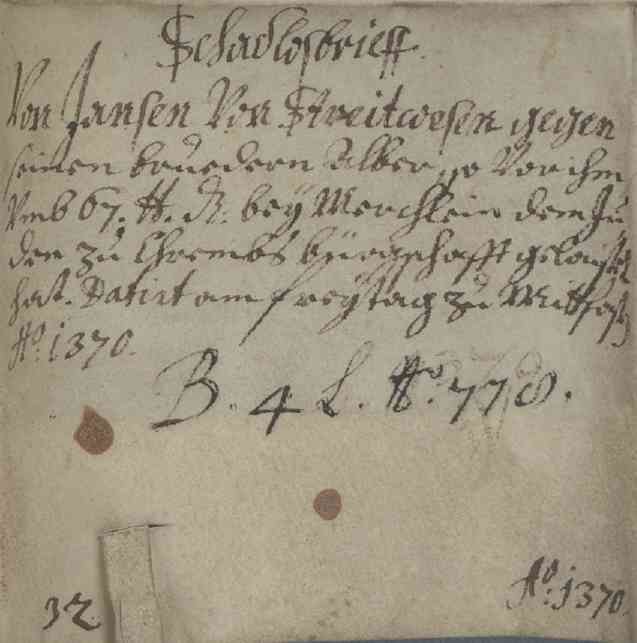 Schadlosbrieff
Von Jansen Von Streitwesen gegen
seinen bruedern Alber, so Vor ihm
Vmb 67. ℔. ₰. bey Merchlein dem Ju
den zu Chrembs bürgschafft gelaist
hat. Datirt am freytag zu Mitfast
Aº. 1370.
B. 4 L. 778.
32
Aº. 1370